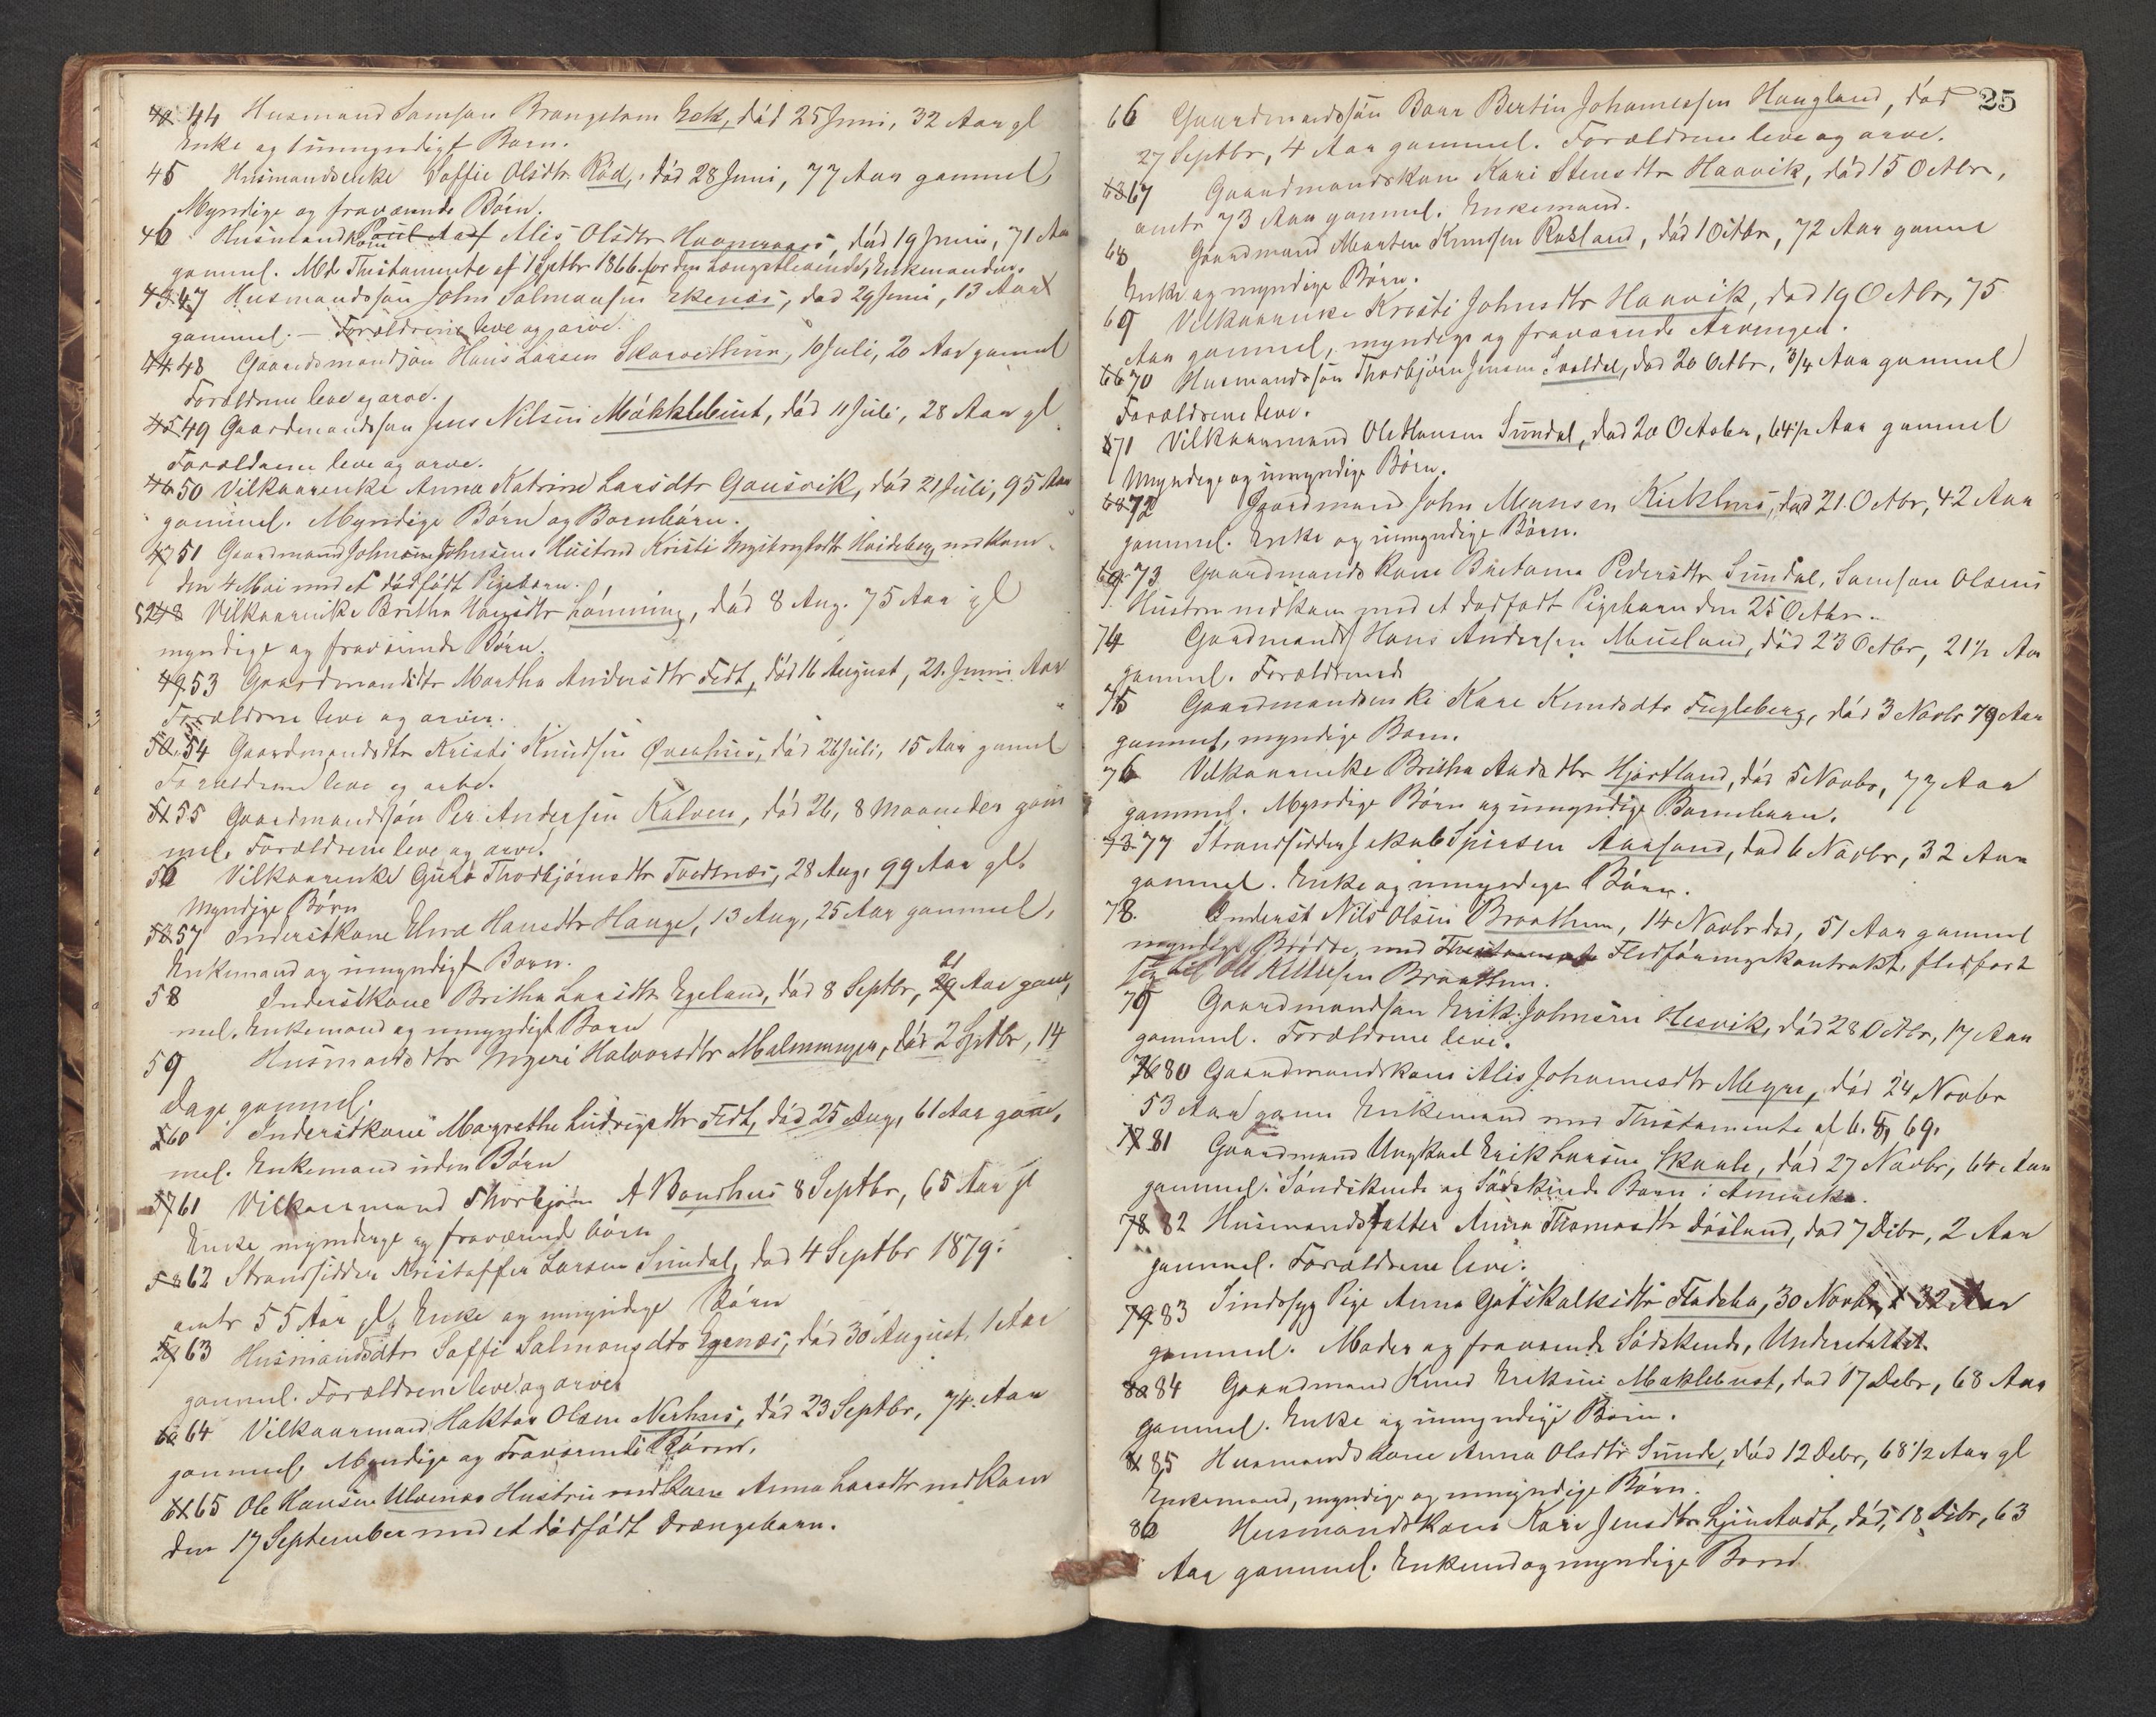 44 Husmand Samson Brangelsen Eek, död 25 Juni, 32 Aar gl
Enke og 1 umyndigt Barn.
45 Husmandsenke Soffie Olsdtr Röd, död 28 Juni, 77 Aar gammel,
Myndige og fraværende Börn.
46 Husmandkone Alis Olsdtr, död 19 Juni, 71 Aar
gammel. Mdl Thestamente af 1 Septbr 1866 for den Længstlevende, Enkemanden.
43 47 Husmandssön John Salmonsen Ekenæs, död 29 Juni, 13 Aar
gammel. — Forældrene leve og arve.
44 48 Gaardsmandssön Hans Larsen Skarvethun, 10 Juli, 20 Aar gammel
Forældrene leve og arve.
45 49 Gaardmandssön Jens Nilsen Mökklebust, död 11 Juli, 28 Aar gl
Forældrene leve og arve.
46 50 Vilkaarenke Anna Katrine Larsdtr Gausvik, död 21 Juli, 95 Aar
gammel. Myndige Börn og Barnbörn.
47 51 Gaardmand Johnsens Hustru Kristi Hvideberg nedkom
den 4 Mai med et dödfödt Pigebarn.
52 48 Vilkaarenke Britha Hansdtr Lömning, död 8 Aug. 75 Aar gl
myndige og fraværende Börn.
49 53 Gaardmandsdtr Martha Andersdtr Fedt, död 16 August, 21 Aar
Forældrene leve og arver.
50 54 Gaardmandsdtr Kristi Knudsen Øvrehus, död 26 Juli, 15 Aar gammel
Forældrene leve og arve.
51 55 Gaardmandssön Per Andersen Kalven, död 26, 8 Maaneder gam
mel. Forældrene leve og arve.
56 Vilkaarenke Guro Thorbjörnsdtr Tvedtnæs, 28 Aug. 99 Aar gl.
Myndige Börn
53 57 Inderstkone Elna Hansdtr Hauge, 13 Aug, 25 Aar gammel,
Enkemand og umyndigt Barn.
58 Inderstkone Britha Larsdtr Egeland, död 8 Septbr, 29 Aar gam
mel. Enkemand og umyndigt Barn
59 Husmandsdtr Ingeri Halvorsdtr Malmanger, död 2 Septbr, 14
Dage gammel.
60 Inderstkone Magrethe Ludvigsdtr Fedt, död 25 Aug, 61 Aar gam
mel. Enkemand uden Börn
57 61 Vilkaarmand Thorbjörn A Bondhus 8 Septbr, 65 Aar gl
Enke myndige og fraværende börn
58 62 Strandsidder Kristoffer Larsen Sundal, död 4 Septbr 1879:
omtr 55 Aar gl, Enke og umyndige Börn
59 63 Husmandsdtr Soffi Salmonsdtr Egenæs, död 30 August, 1 Aar
gammel. Forældrene leve og arver
60 64 Vilkaarmand Haktor Olsen Nerhus, död 23 Septbr, 74 Aar
gammel. Myndige og Fraværende Börn.
61 65 Ole Hansen Ulvenæs Hustru nedkom Anna Larsdtr nedkom
den 17 September med et dödfödt Drængebarn.
25
66 Gaardmandssön Baar Bertin Johannessen Haugland, död
27 Septbr, 4 Aar gammel. Forældrene leve og arve.
63 67 Gaardmandskone Kari Stensdtr Haavik, död 15 Octbr,
omtr 73 Aar gammel. Enkemand.
68 Gaardmand Morten Knudsen Røsland, död 1 Octbr, 72 Aar gamml
Enke og myndige Börn.
69 Vilkaarenke Kristi Johnsdtr Haavik, död 19 Octbr, 75
Aar gammel, myndige og fraværende Arvinger.
66 70 Husmandssön Thorbjörn Jensen Svaldal, död 20 Octbr, 3/4 Aar gammel
Forældrene leve.
71 Vilkaarmand Ole Hansen Sundal, död 20 October, 64 1/2 Aar gammel
Myndige og umyndige Börn.
68 72 Gaardmand John Monsen, död 21. Octbr, 42 Aar
gammel. Enke og umyndige Börn.
69 73 Gaardmandskone Pedersdtr Sundal, Samson Olsens
Hustru nedkom med et dödfödt Pigebarn den 25 Octbr.
74 Gaardmands Hans Andersen Musland, död 23 Octbr, 21 1/2 Aar
gammel. Forældrene
75 Gaardmandsenke Kari Knudsdtr Fugleberg, död 3 Novbr 79 Aar
gammel, myndige Börn.
76 Vilkaarenke Britha Aadsdtr Hjortland, död 5 Novbr, 77 Aar
gammel. Myndige Börn og umyndige Barnebarn.
73 77 Strandsidder Jakob Aarsand, död 6 Novbr, 32 Aar
gammel. Enke og umyndige Börn.
78. Inderst Nils Olsen Braathun, 14 Novbr död, 51 Aar gammel
myndige Brödre, med Thestamente Fledföringskontrakt, fledfört
sig til Ole Braathun.
79 Gaardmandssön Erik Johnsen Hesvik, död 28 Octbr, 17 Aar
gammel. Forældrene leve.
76 80 Gaardmandskone Alis Johannesdtr Megre, död 24 Novbr
53 Aar gamm Enkemand med Thestamente af 6. 8, 69.
77 81 Gaardmand Ungkarl Erik Larsen Skaale, död 27 Novbr, 64 Aar
gammel. Södskende og Södskende Barn i Amerika.
78 82 Husmandsdatter Anna Thomasdtr Dösland, död 7 Debr, 2 Aar
gammel. Forældrene leve.
79 83 Sindssyg Pige Anna Gotskalksdtr Fladebø, 30 Novbr, 32 Aar
gammel. Moder og fraværende Södskende, Understöttet.
80 84 Gaardmand Knud Eriksen Moklebust, död 17 Debr, 68 Aar
gammel. Enke og umyndige Börn.
81 85 Husmandskone Anna Olsdtr Sunde, död 12 Debr, 68 1/2 Aar gl
Enkemand, myndige og umyndige Börn.
86 Husmandskone Kari Jensdtr Ljustadt, död, 18 Debr, 63
Aar gammel. Enkemd og myndige Börn